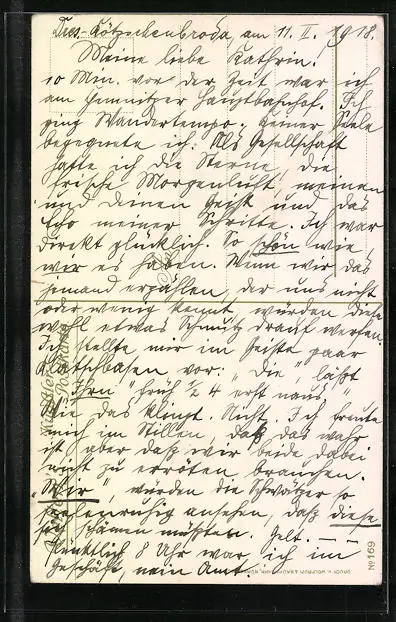 Dres.-Kötzschenbroda, am 11. II. 1918.
Meine liebe Kathrin!
10 Min. vor der Zeit war ich
am Chemnitzer Hauptbahnhof. Ich
ging Wandertempo. Keiner Seele
begegnete ich. Als Gesellschaft
hatte ich die Sterne, die
frische Morgenluft, meinen
und deinen Geist und das
Echo meiner Schritte. Ich war
direkt glücklich. So schön wie
wir es haben. Wenn wir das
jemand erzählen, der uns nicht
oder wenig kennt, würden diese
wohl etwas Schmutz drauf werfen.
Ich stellte mir im Geiste paar
Klatschbasen vor: "Die läßt
"Ihn" früh ½ 4 erst naus"
Wie das klingt. Nicht. Ich freute
mich im Stillen, daß das wahr
ist, aber daß wir beide dabei
nicht zu erröten brauchen.
"Wir", würden die Schwätzer so
seelenruhig ansehen, daß diese
sich schämen müßten. Gelt. — —
Pünktlich 8 Uhr war ich im
Geschäft, nein Amt.
No 169